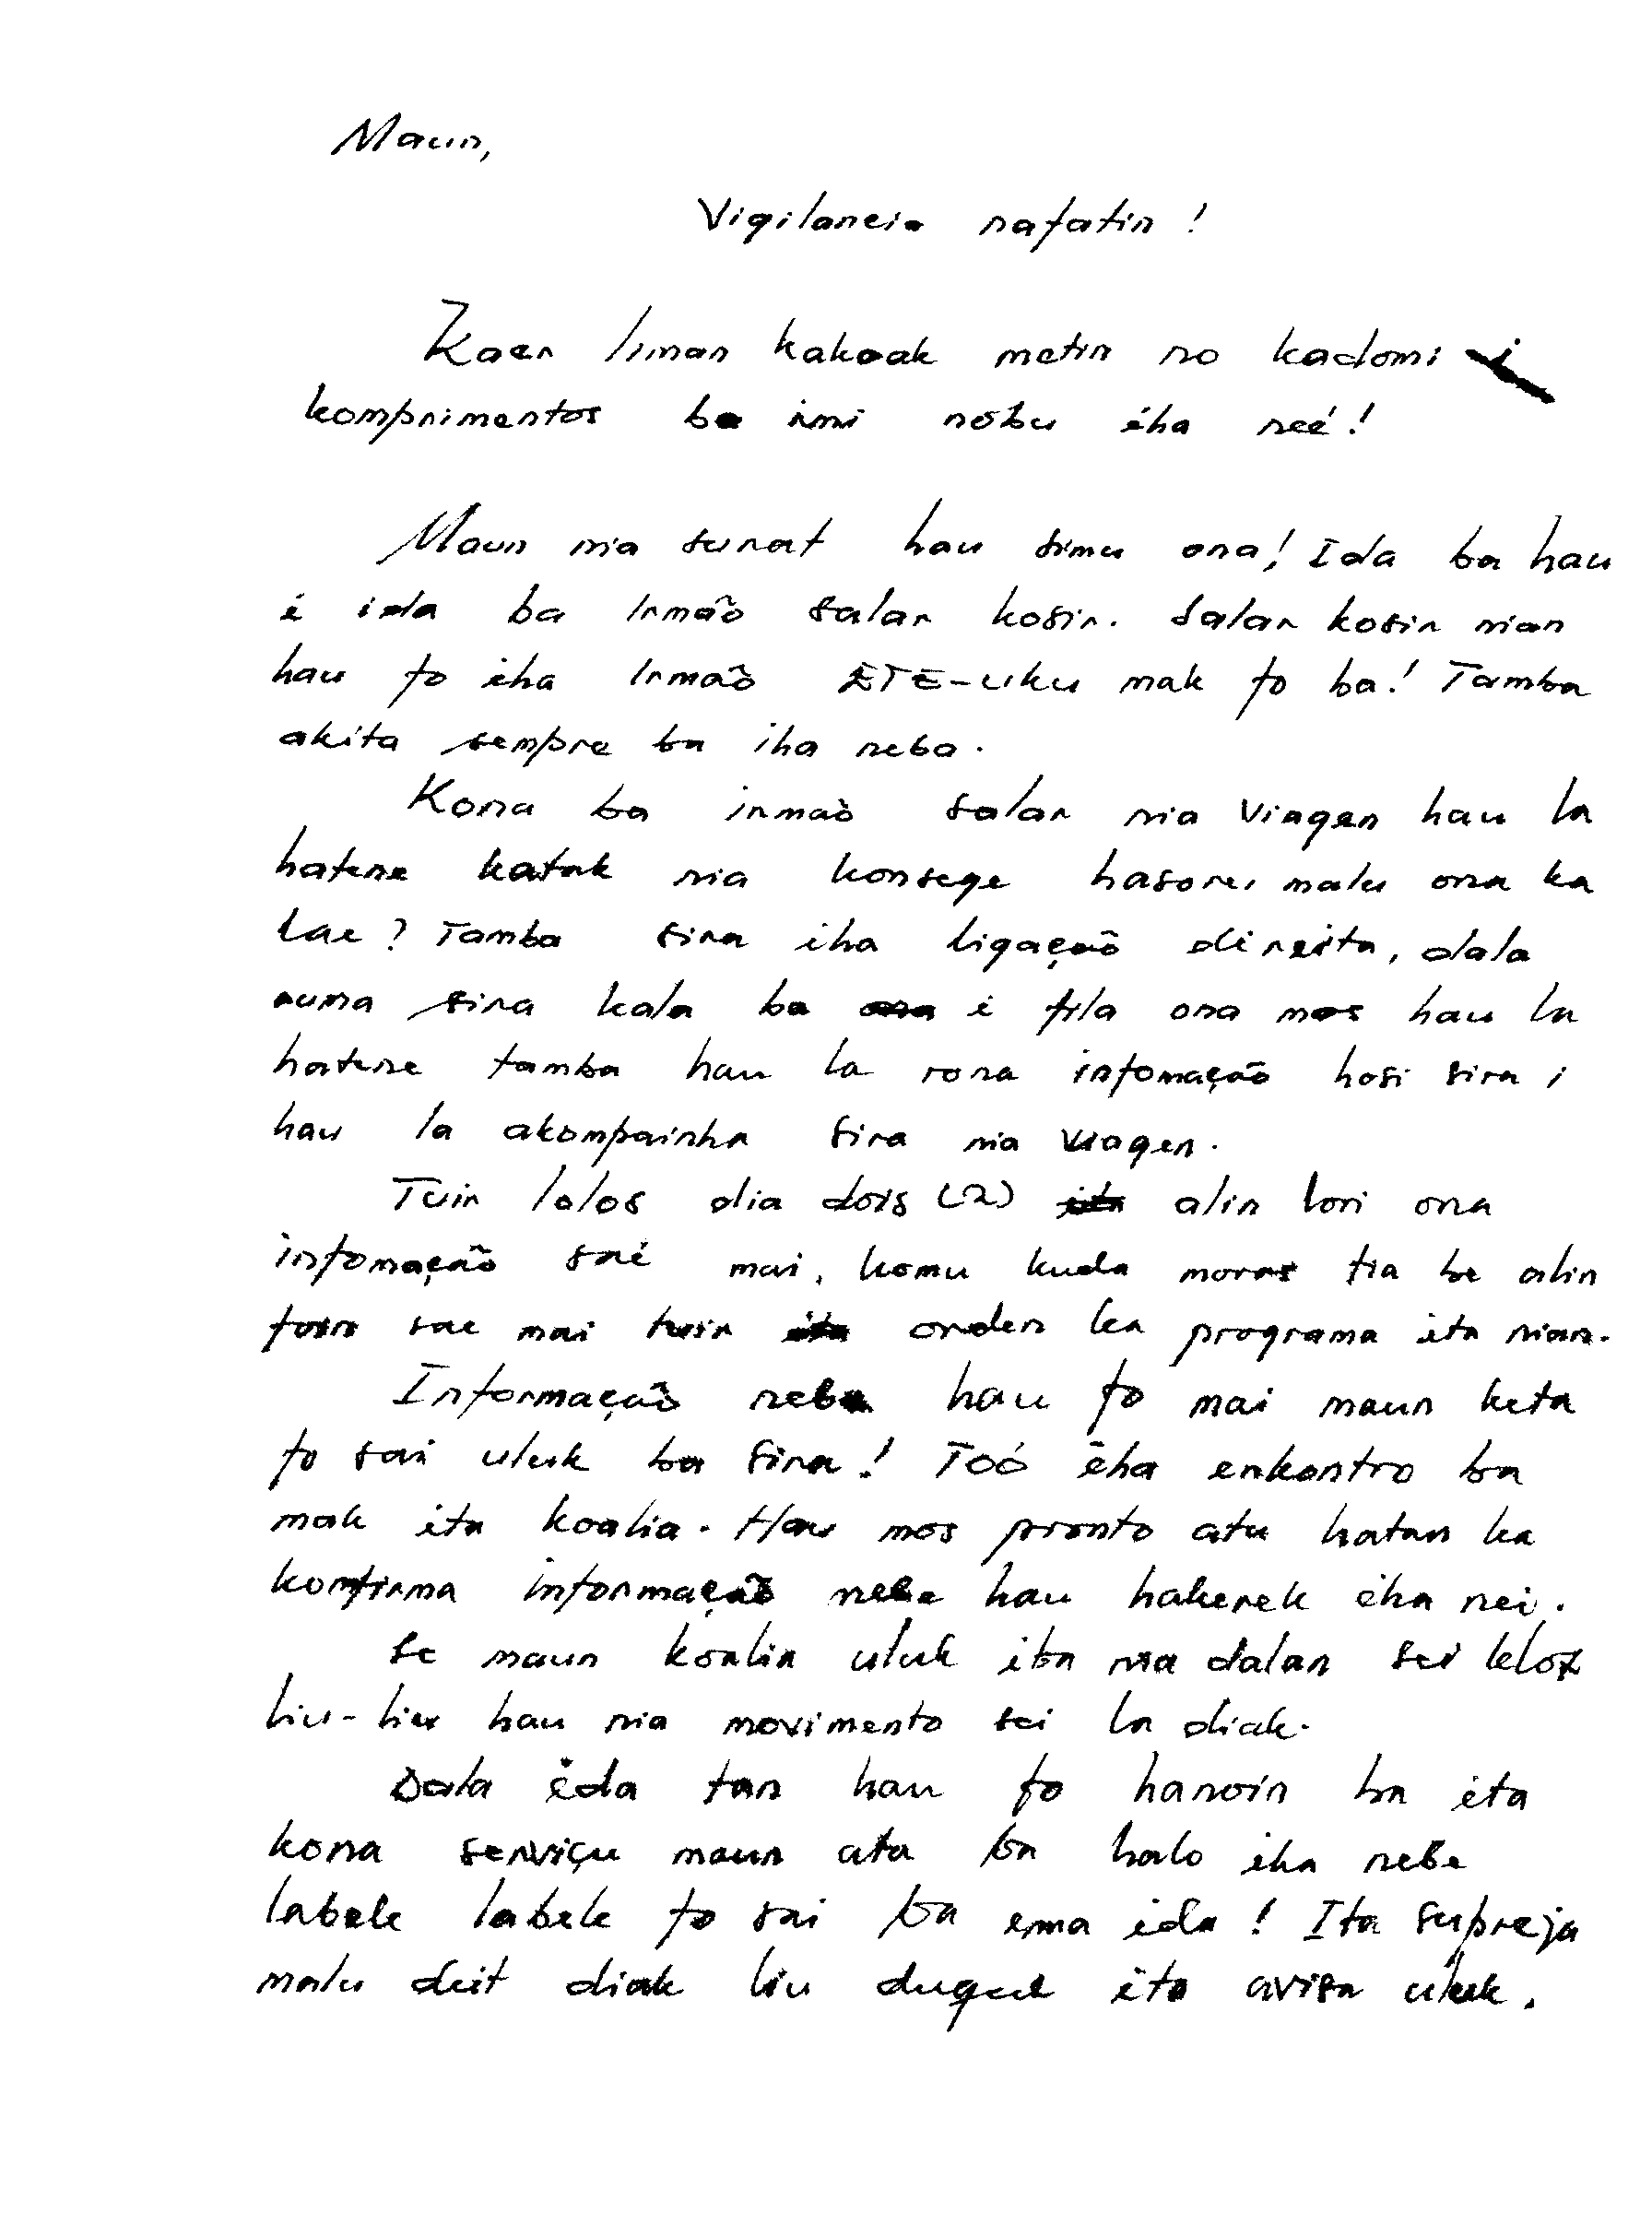 Maun,
Vigilancia nafatin!
Kaer liman kakoak metin no kadomi
komprimentos ba imi nöbu iha neé!
Maun nia surat hau simu ona! Ida ba hau
i ida ba Irmaõ salar kosir. Salar kosir nian
hau fo iha Irmaõ ETE-uku mak fo ba! Tamba
akita sempre ba iha neba.
Kona ba irmaõ salar nia viagen hau la
hatene katak nia konsege hasorei malu ona ka
lae? Tamba sira iha ligaçaõ direita, dala
ruma sira kala ba i fila ona mos hau la
hatene tamba hau la rona infomaçaõ hosi sira i
hau la akompainha sira nia viagen.
Tuir lolos dia dois (2) alin lori ona
infomaçaõ saé mai, komu kuda moras tia be alin
foin sae mai tuir orden ka programa ita nian.
Informaçaõ nebe hau fo mai maun keta
fo sai uluk ba sira! Toó iha enkontro ba
mak ita koalia. Hau mos pronto atu hatan ka
konfirma informaçaõ nebe hau hakerek iha nei.
Se maun koalia uluk ita nia dalan sei klot
liu-liu hau nia movimento sei la diak.
Dala ida tan hau fo hanoin ba ita
kona serviçu maun ata ba halo iha nebe
labele labele fo sai ba ema ida! Ita supreja
malu deit diak liu duque ita avisa uluk.